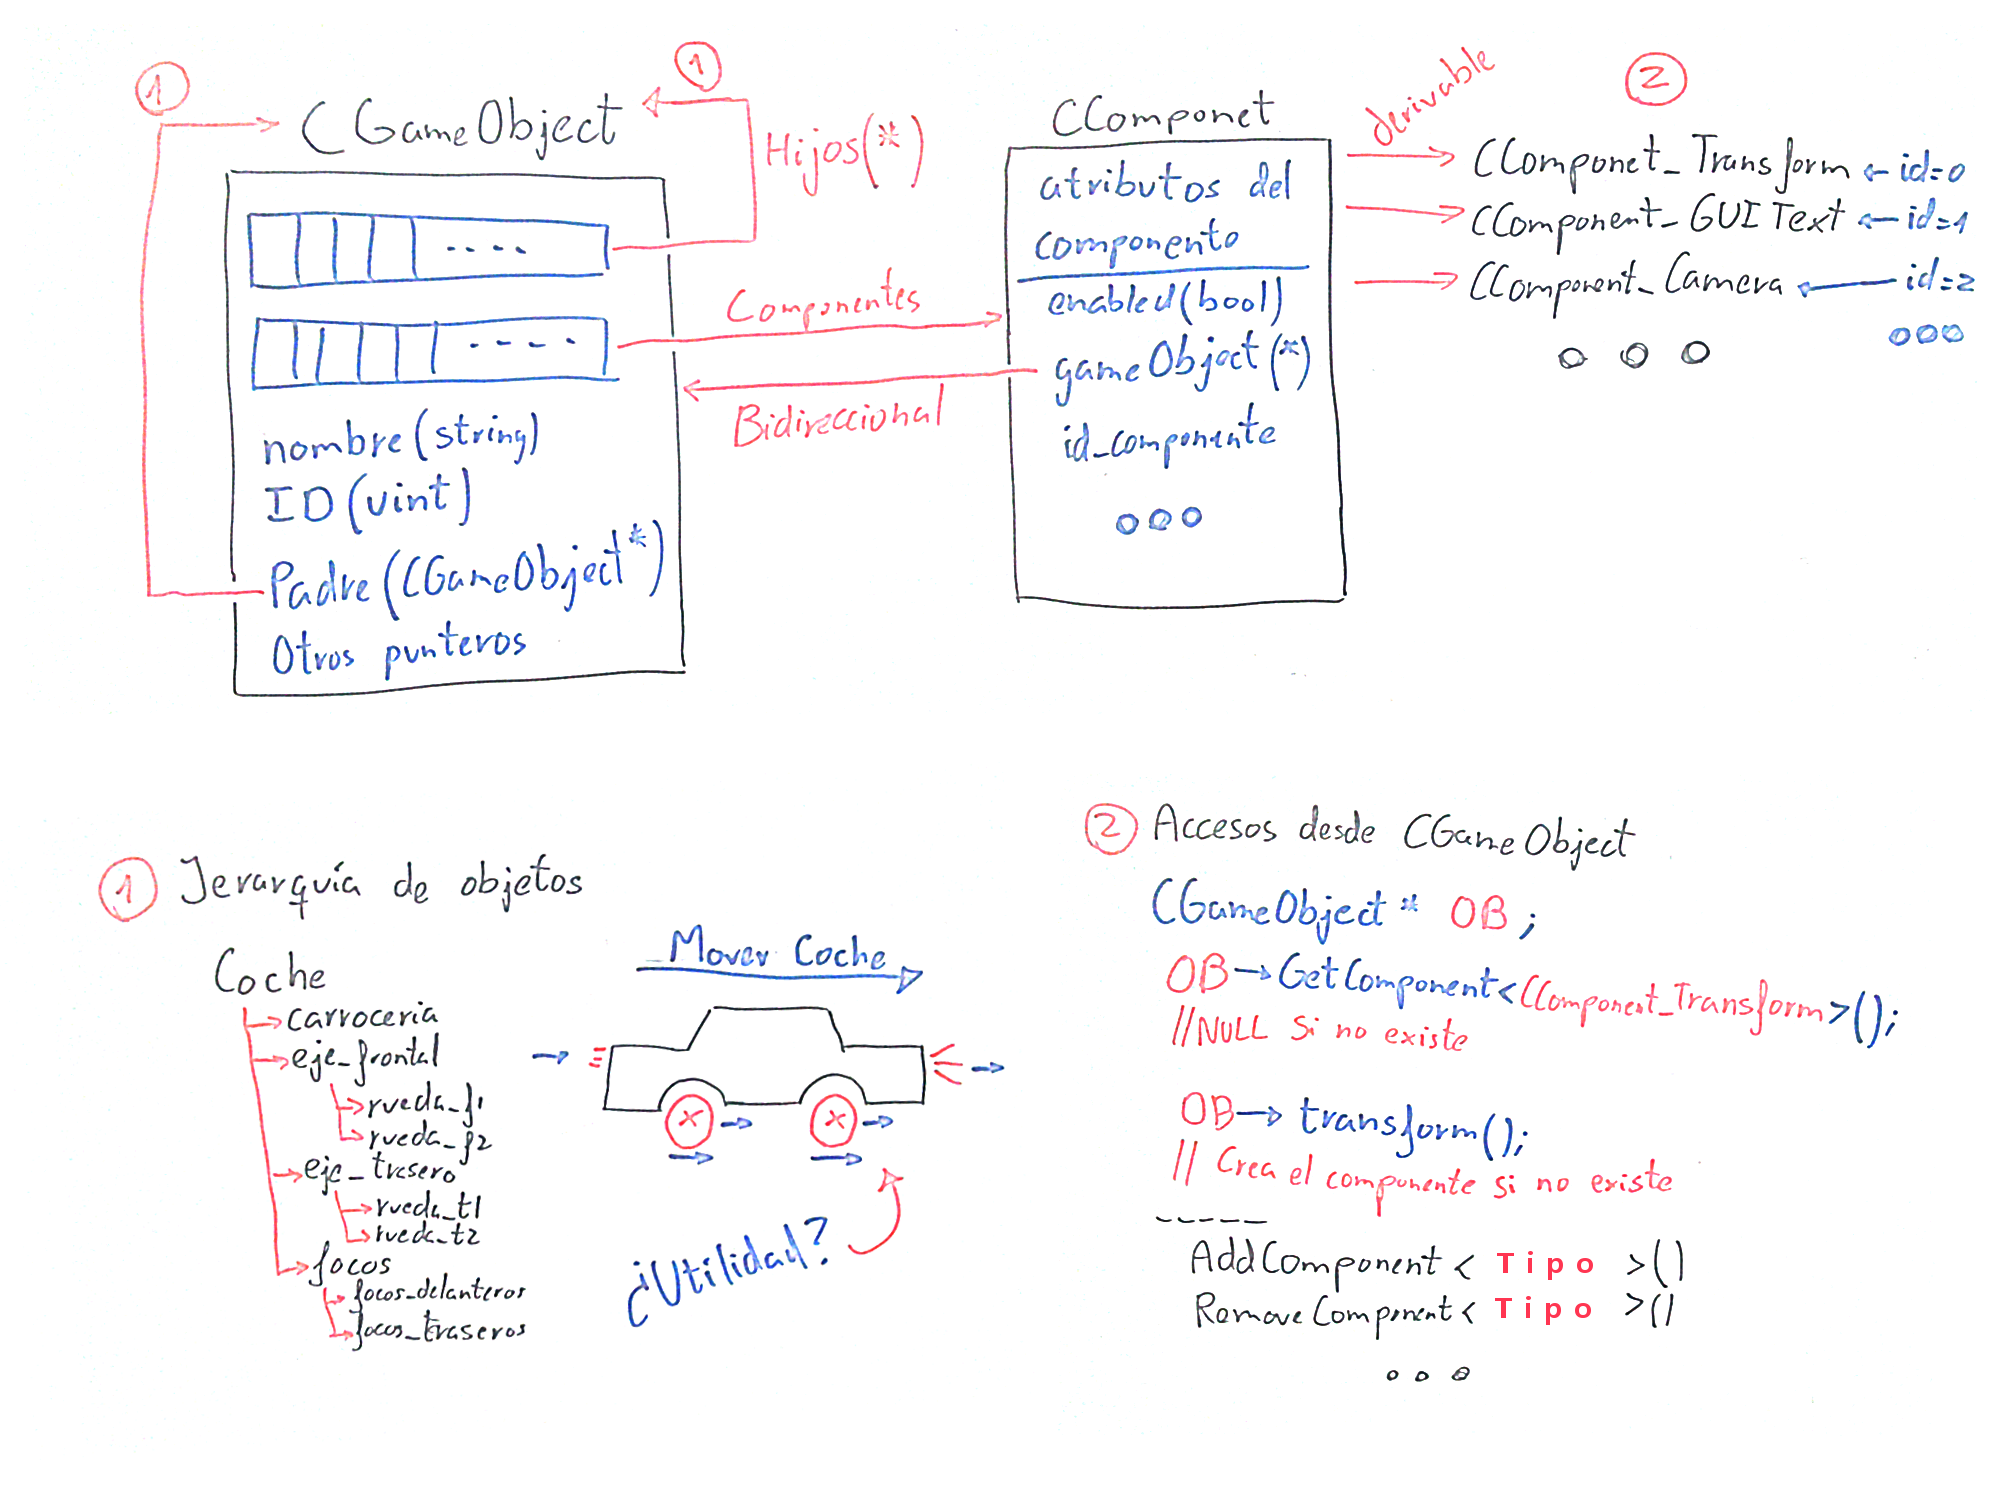 1
CGameObject
1
Hijos(*)
----
Componentes
----
Bidireccional
nombre(string)
ID(uint)
Padre(CGameObject*)
Otros punteros
CComponet
atributos del
componento
enabled(bool)
gameObject(*)
id_componente
derivable
2
CComponet_Transform ← id=0
CComponent_GUIText ← id=1
CComponent_Camera ← id=2
1 Jerarquía de objetos
Coche
carroceria
eje_frontal
rueda_f1
rueda_f2
eje_trasero
rueda_t1
rueda_t2
focos
focos_delanteros
focos_traseros
Mover Coche
¿Utilidad?
2 Accesos desde CGameObject
CGameObject* OB;
OB→GetComponent<CComponent_Transform>();
//NULL Si no existe
OB→transform();
// Crea el componente si no existe
-----
AddComponent< Tipo >()
RemoveComponent< Tipo >()